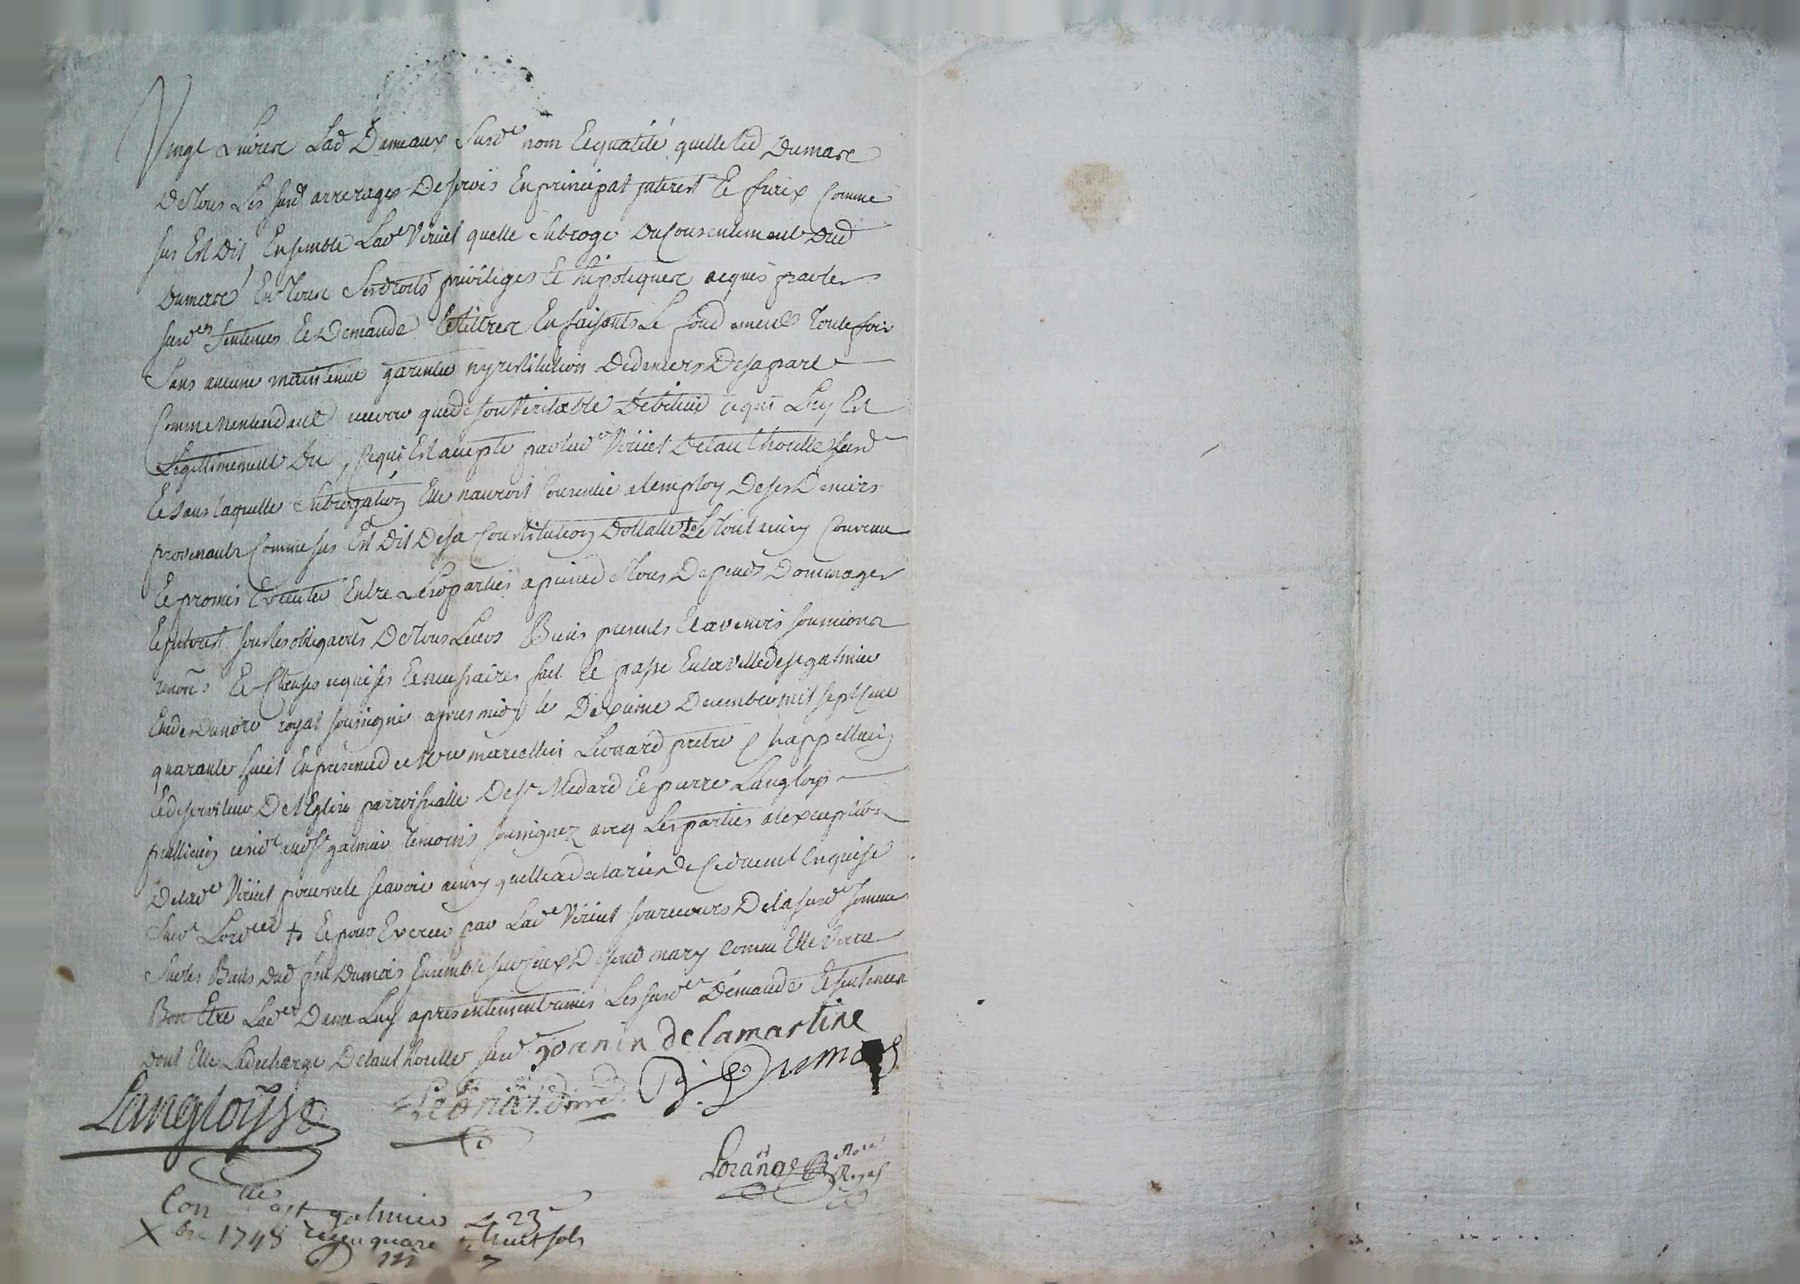 Vingt Livres Lad Dameaux Susde nom Et qualité quelle led Dumare
De Tous Les susd arrerages Desquois En principal jnterest Et fraix Comme
sus Est Dit Ensemble Lade Viruet quelle subroge Du Consentement Dud
Dumare En Tous Ses droits privileges Et hipoteques acquis par les
susdes sentences Et Demande Et tittres En faisants Le fondement Toute fois
Sans aucune maintenue garentie ny restitution De deniers De sa part
Comme Nentendant recevoir que de son Veritable Debiteur ce qui Luy Est
Legitimement Du, ce qui Est accepté par lade Viruet De lauthorité susd
Et sans laquelle subrogation Elle nauroit Consentie a lemploy De ses Deniers
provenants Comme sus Est Dit De sa Constitution Dottalle Le Tout ainsy Convenu
Et promis Executer Entre Les parties a peine de Tous Depends Dommages
Et jnterest sous les obligaons De Tous Leurs Biens presents Et avenirs soumions
renons Et Clauses requises Et necessaires fait Et passé En la ville de st galmier
Etude Du nore royal soussigné apres midy le Dixieme Decembre mil sept cent
quarante huit En presence de mre marcellin Leonard pretre Chappellain
Et deserviteur De l'Eglise parroissialle De st Medard Et pierre Langlois
praticien resident aud st galmier temoins soussignez avec Les parties a lexception
De lade Viruet pour ne le sçavoir ainsy quelle a declaré De Ce duement Enquise
Et pour Exercer par Lade Viruet son recours De la susde somme
sur les Biens Dud feu Dumois Ensemble sur ceux D sond mary Comme Elle Verra
Bon Etre Lade Dame Luy a presentement remis Les susdes Demande Et sentences
dont Elle La decharge De lauthorité susd Joanin de Lamartine
Langloys Leonard ptre B. Dumas
Lorange Nore Royal
Con lé a st galmier Le 23
Xbre 1748 receu quarante huit sols